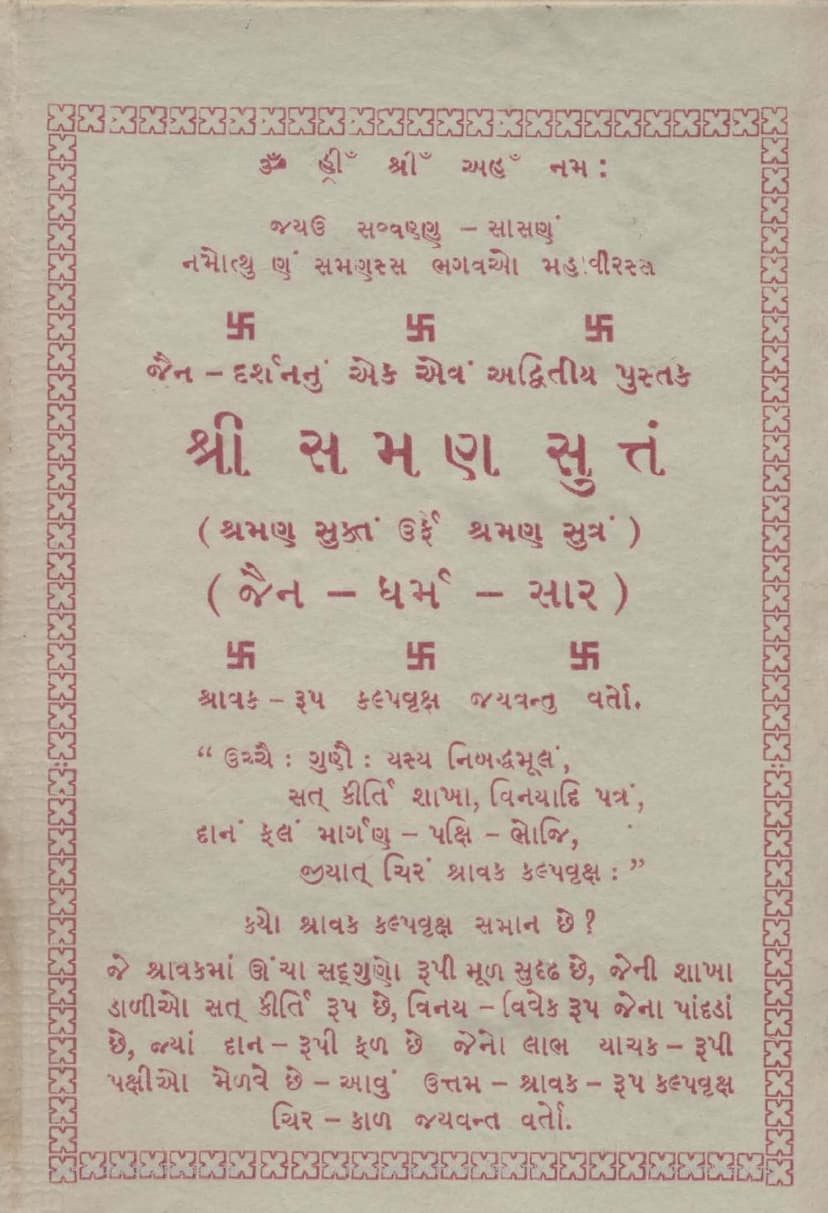 ૐ હ્રીઁ શ્રીઁ અહઁ નમ:
જયઉ સવ્વણ્ણુ – સાસણં
નમોત્થુ ણં સમણસ્સ ભગવઓ મહાવીરસ્સ
卐 卐 卐
જૈન – દર્શનનું એક એવં અદ્વિતીય પુસ્તક
શ્રી સમણ સુત્તં
(શ્રમણ સુક્તં ઉર્ફે શ્રમણ સુત્રં)
(જૈન – ધર્મ – સાર)
卐 卐 卐
શ્રાવક – રૂપ કલ્પવૃક્ષ જયવન્તુ વર્તો.
“ ઉચ્ચૈ: ગુણૈ: યસ્ય નિબદ્ધમૂલં,
સત્ કીર્તિ શાખા, વિનયાદિ પત્રં,
દાનં ફલં માર્ગણ – પક્ષિ – ભોજિ,
જીયાત્ ચિરં શ્રાવક કલ્પવૃક્ષ: ”
કયો શ્રાવક કલ્પવૃક્ષ સમાન છે?
જે શ્રાવકમાં ઊંચા સદ્ગુણો રૂપી મૂળ સુદૃઢ છે, જેની શાખા
ડાળીઓ સત્ કીર્તિ રૂપ છે, વિનય – વિવેક રૂપ જેના પાંદડાં
છે, જ્યાં દાન – રૂપી ફળ છે જેનો લાભ યાચક – રૂપી
પક્ષીઓ મેળવે છે – આવું ઉત્તમ – શ્રાવક – રૂપ કલ્પવૃક્ષ
ચિર – કાળ જયવન્ત વર્તો.